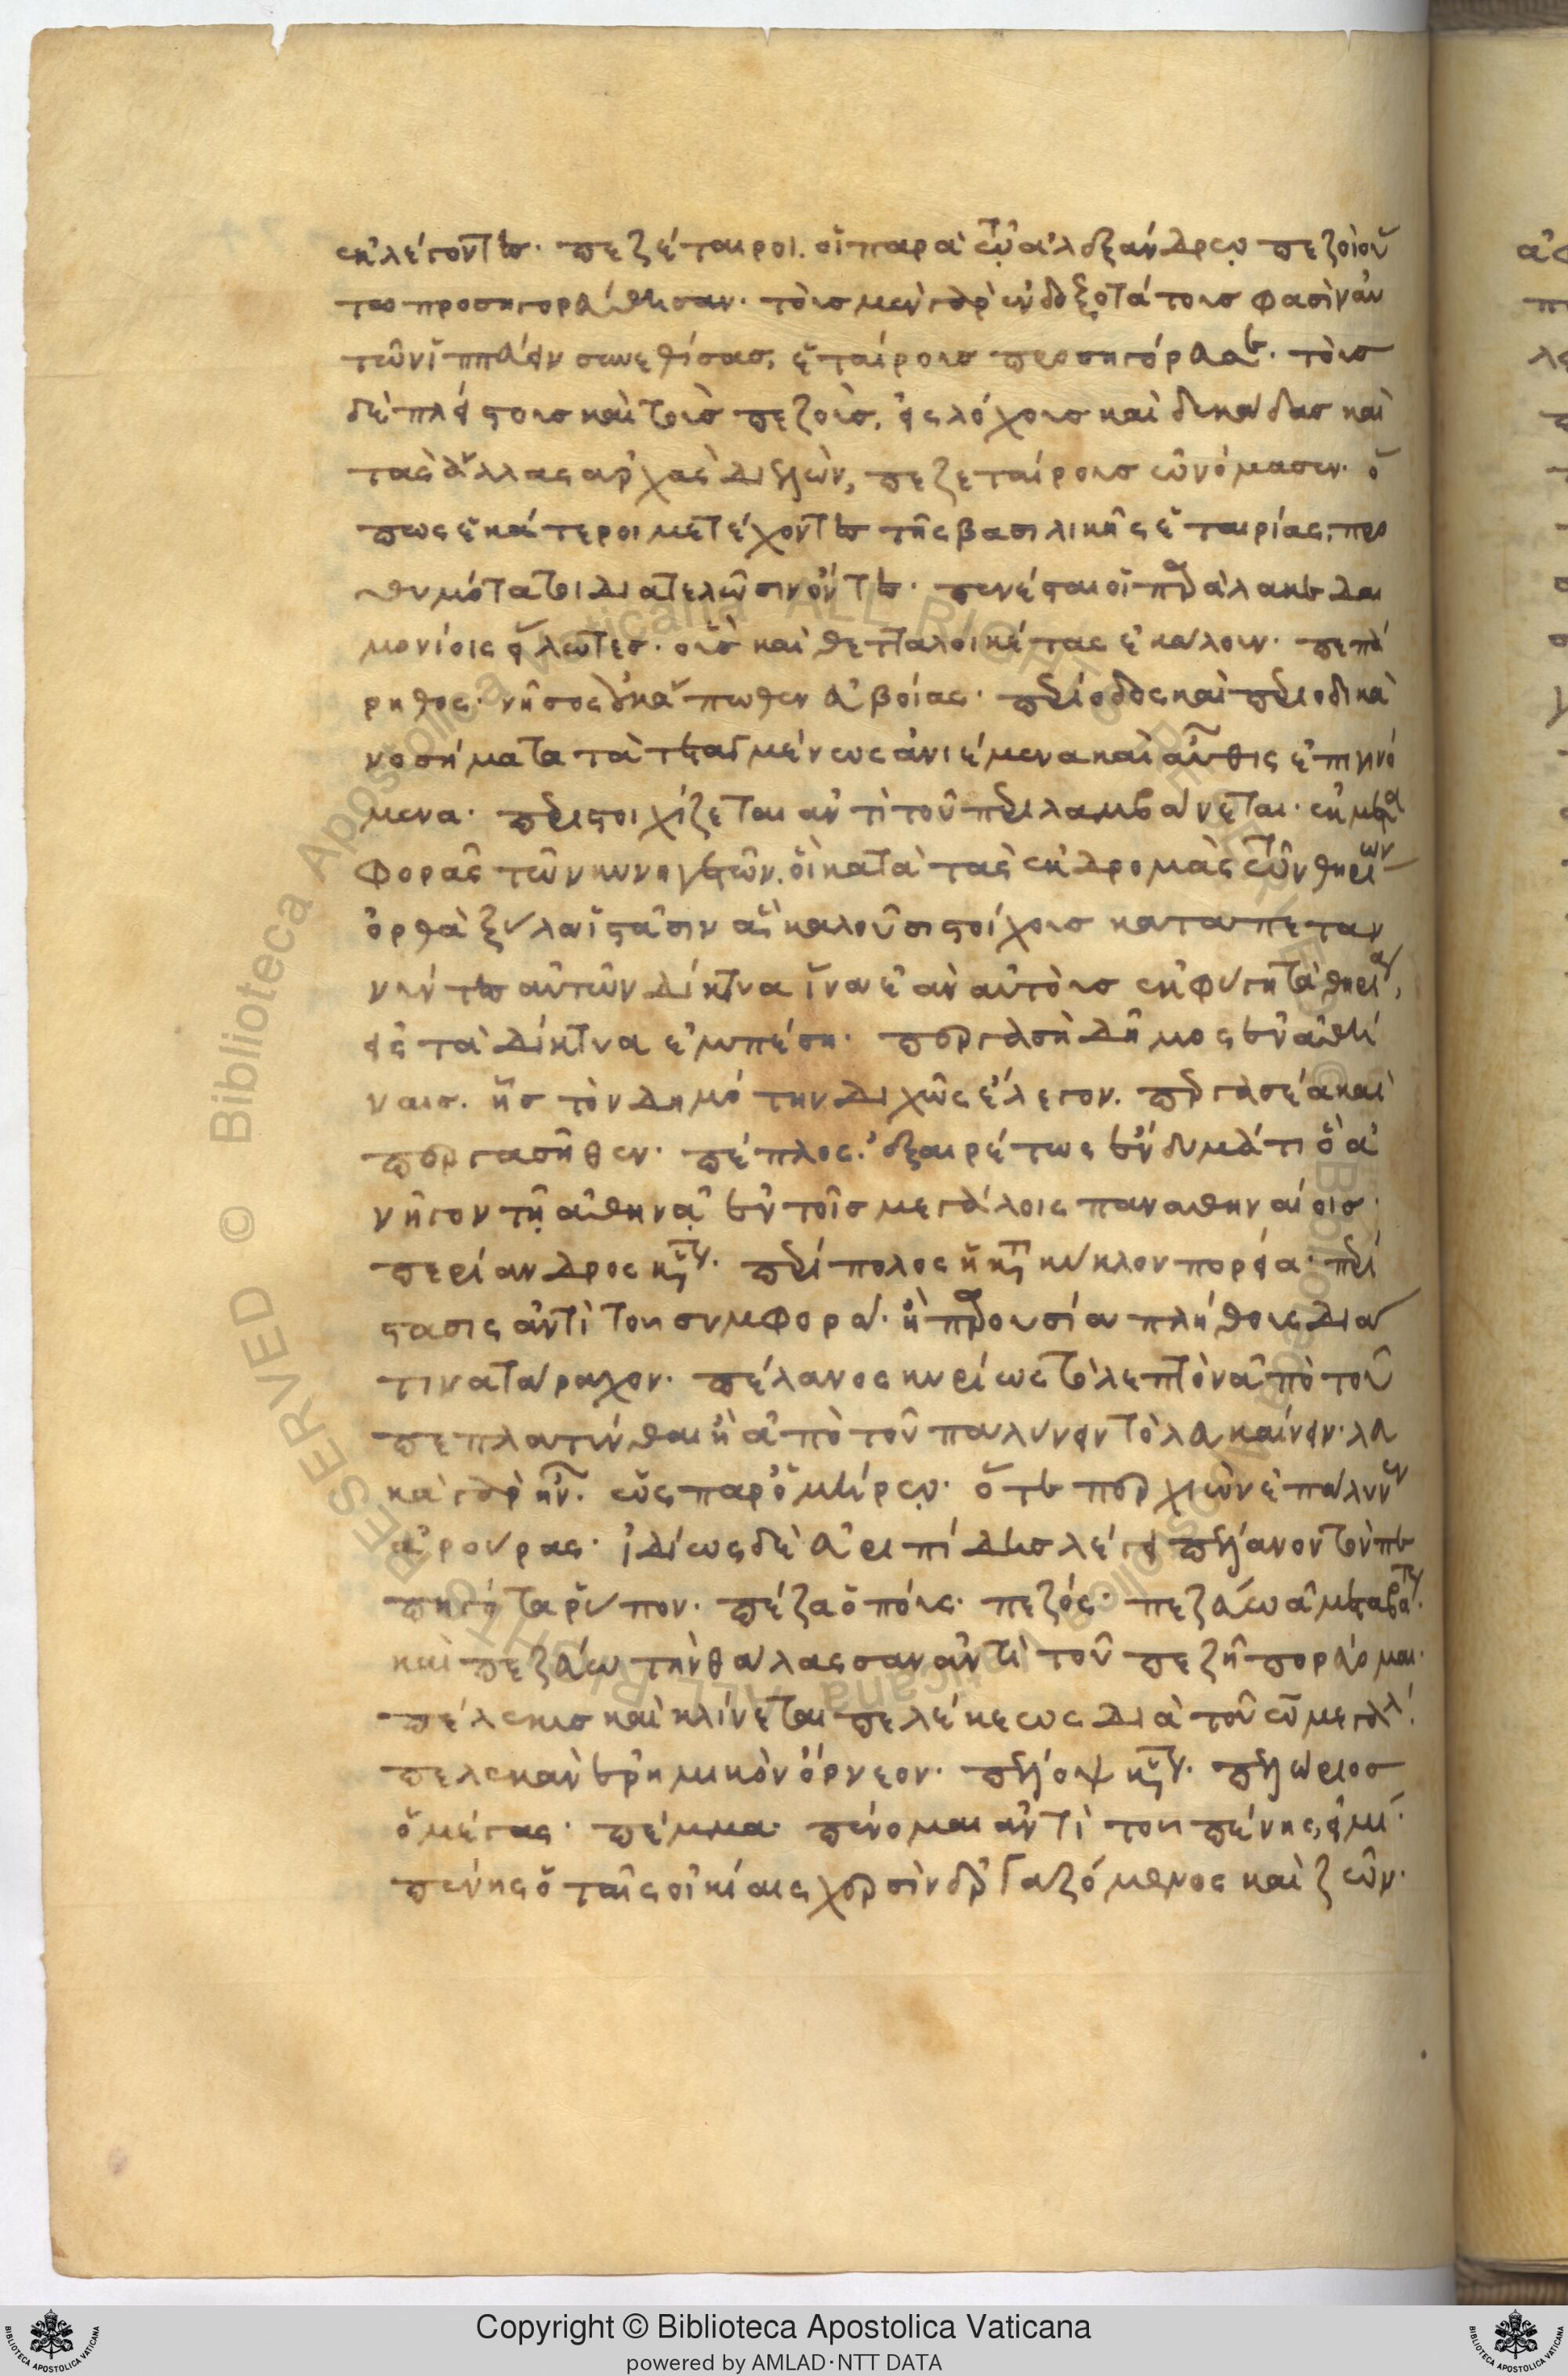 ἐκλέγοντες. πεζέταιροι. οἱ παρὰ τῷ ἀλεξάνδρῳ πεζοὶ οὕ
τω προσηγορεύθησαν. τοὺς μὲν γὰρ ἐνδοξοτάτους φασὶν αὐ
τῶν ἱππεύειν συνεθίσας, ἑταίρους προσηγόρευσε. τοὺς
δὲ πλείστους καὶ τοὺς πεζοὺς, εἰς λόχους καὶ δεκάδας καὶ
τὰς ἄλλας ἀρχὰς διελὼν, πεζεταίρους ὠνόμασεν. ὅ
πως ἑκάτεροι μετέχοντες τῆς βασιλικῆς ἑταιρίας, προ
θυμότατοι διατελῶσιν ὄντες. πενέσται οἱ παρὰ λακεδαι
μονίοις εἵλωτες. οὓς καὶ θετταλοικέτας ἐκάλουν. πεπά
ρηθος. νῆσος οὐκ ἄπωθεν εὐβοίας. περίοδος καὶ περιοδικὰ
νοσήματα τὰ τεταγμένως ἀνιέμενα καὶ αὖθις ἐπιγινό
μενα. περιστοιχίζεται ἀντὶ τοῦ περιλαμβάνεται. ἐκ μετα
φορᾶς τῶν κυνηγετῶν. οἳ κατὰ τὰς ἐκδρομὰς τῶν θηρίων
ὀρθὰ ξύλα ἱστᾶσιν ἃ καλοῦσι στοίχους καταπεταν
νύντες αὐτῶν δίκτυα ἵνα ἐὰν αὐτοὺς ἐκφύγῃ τὰ θηρία,
εἰς τὰ δίκτυα ἐμπέσῃ. περγασὴ δῆμος ἐν ἀθή
ναις. ἧς τὸν δημότην διχῶς ἔλεγον. περγασέα καὶ
περγασῆθεν. πέπλος. ἐξαιρέτως ἐνδυμάτι ὃ ἀ
νῆγον τῇ ἀθηνᾷ ἐν τοῖς μεγάλοις παναθηναίοις.
περίανδρος κύριον. περίπολος ἡ κατὰ κύκλον πορεία. περί
στασις ἀντὶ του συμφορά. ἢ παρουσία πλήθους διά
τινα τάραχον. πέλανος κυρίως τὸ λεπτὸν ἀπὸ τοῦ
πεπλατύνθαι ἢ ἀπὸ τοῦ παλύνειν τὸ λευκαίνειν. λευ
κὰ γὰρ ἦν. ὡς παρ' ὁμήρῳ. ὅτε περ χιὼν ἐπάλυνεν
ἀρούρας. ἰδίως δὲ εὐριπίδης λέγει πέλανον τὸν πε
πηγότα ῥύπον. πέζα ὁ πούς. πεζός. πεζεύω ἀμετάβατον.
καὶ πεζεύω τὴν θάλασσαν ἀντὶ τοῦ πεζῇ πορεύομαι.
πέλεκυς καὶ κλίνεται πελέκεως διὰ τοῦ ω μεγάλου.
πελεκὰν ἐρημικὸν ὄρνεον. πέλοψ κύριον. πελώριος
ὁ μέγας. πέμμα. πένομαι ἀντὶ του πένης εἰμί.
πένης ὁ ταῖς οἰκείαις χερσὶν ἐργαζόμενος καὶ ζῶν.
Copyright © Biblioteca Apostolica Vaticana
powered by AMLAD·NTT DATA